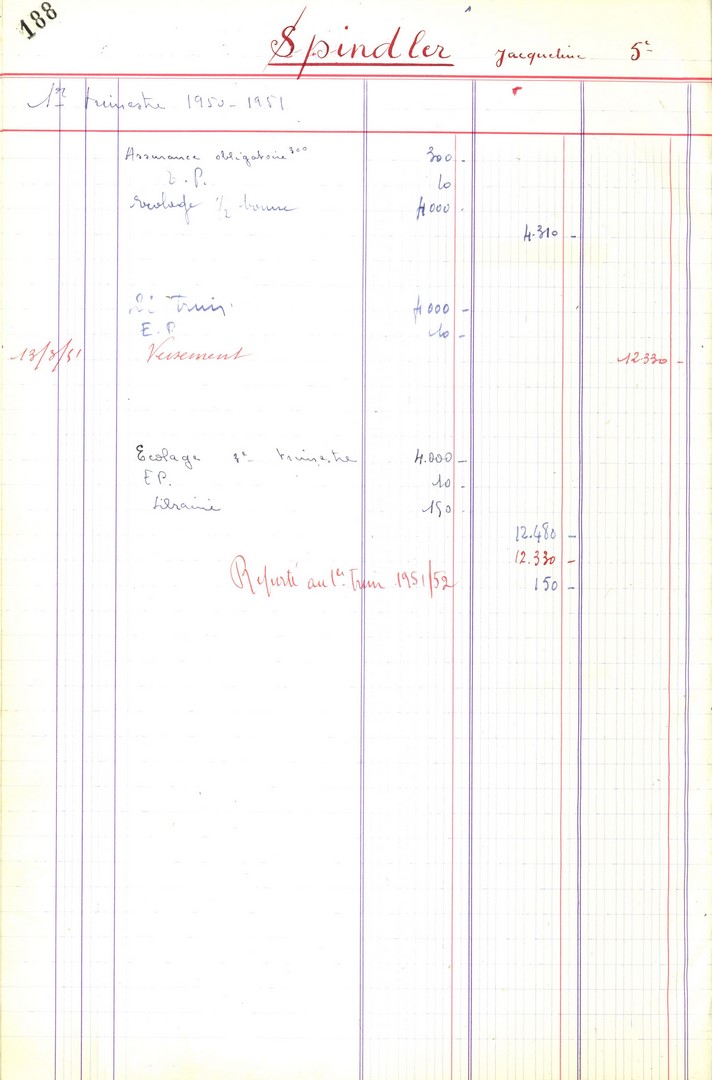 188
Spindler Jacqueline 5e
1er trimestre 1950-1951
Assurance obligatoire 300 300 -
E.P. 10
Ecolage 1/2 bourse 4000 -
4.310 -
2e Trim. 4000 -
E.P. 10 -
13/3/51 Versement 12330 -
Ecolage 3e trimestre 4.000 -
EP. 10 -
Librairie 150 -
12.480 -
12.330 -
Reporté au 1er Trim 1951/52 150 -